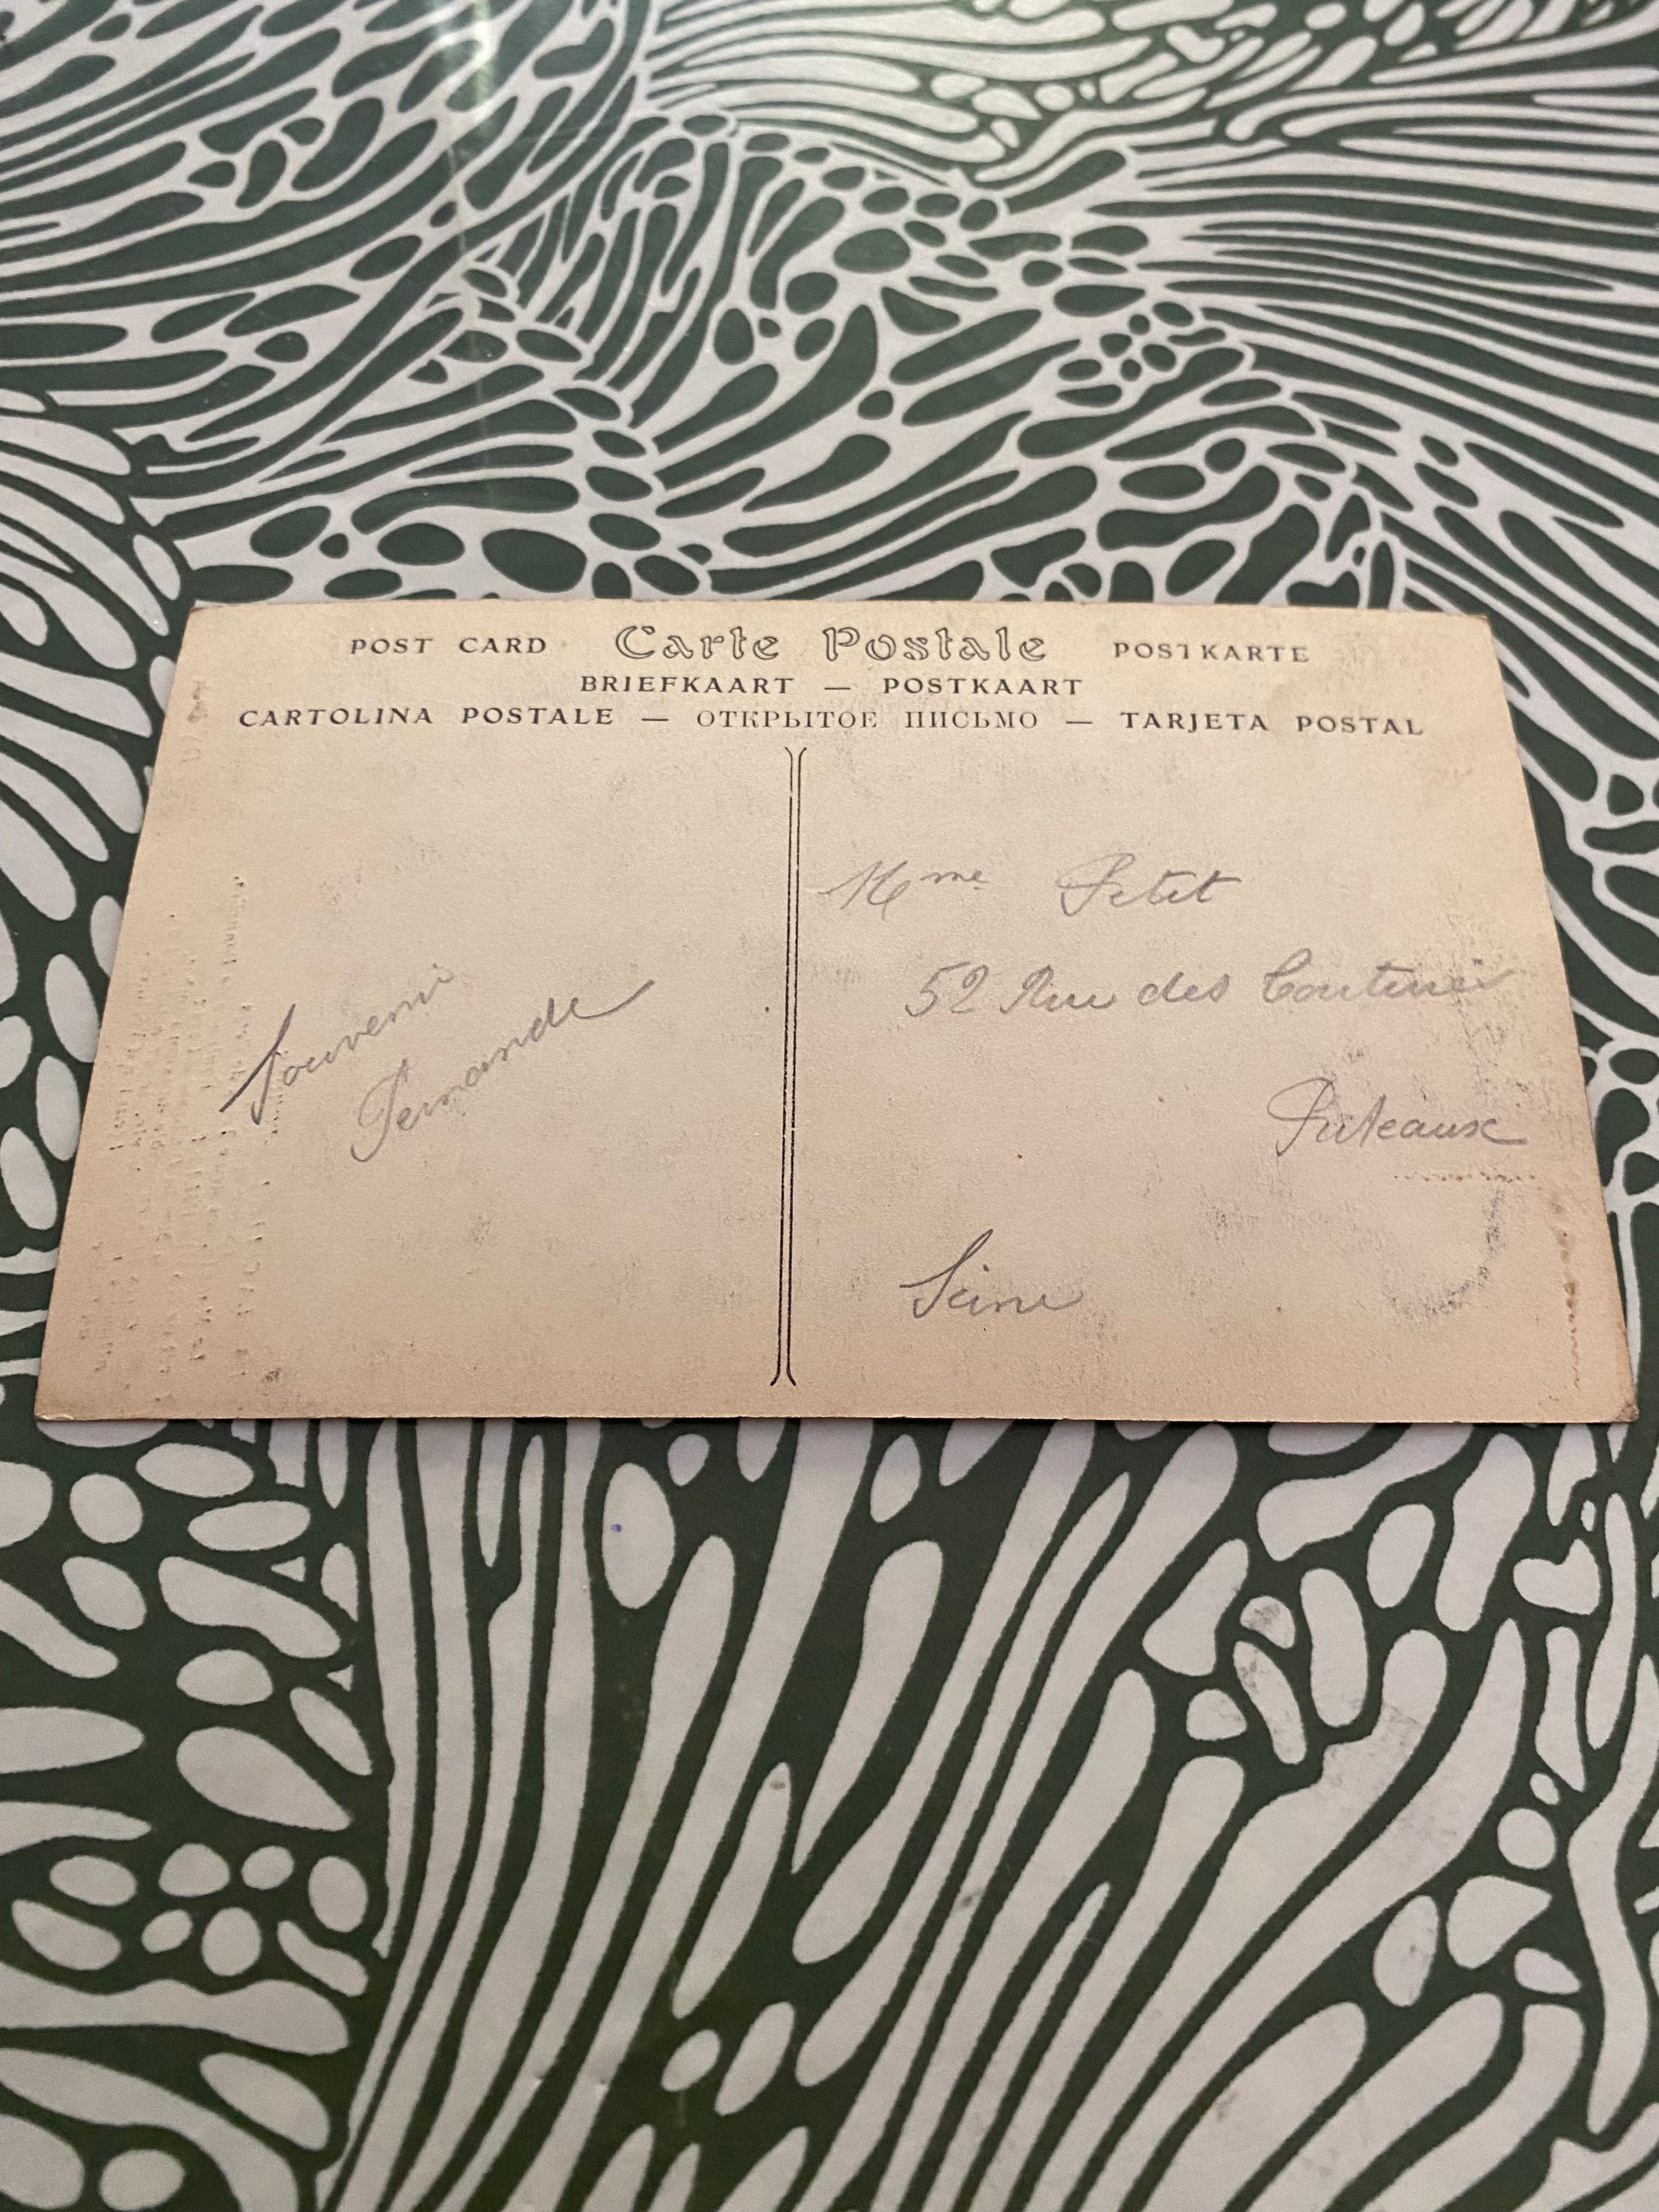 POST CARD Carte Postale POSTKARTE
BRIEFKAART — POSTKAART
CARTOLINA POSTALE — ОТКРЫТОЕ ПИСЬМО — TARJETA POSTAL
Souvenir
Fernande
Mme Petit
52 Rue des
Puteaux
Seine